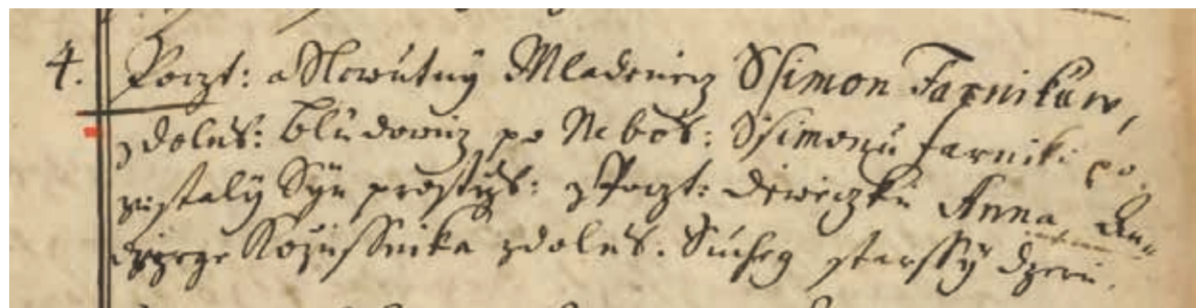 4. Poczt: a Slowutny Mladenecz Ssimon Farnikuw,
z dolnß: Bludowicz po Neboß: Ssimonu Farniki po
zustaly Syn prostżß: z Poczt: Diwiczku Anna,
Kozussnika z dolnß. Suchey starssy dzeru.